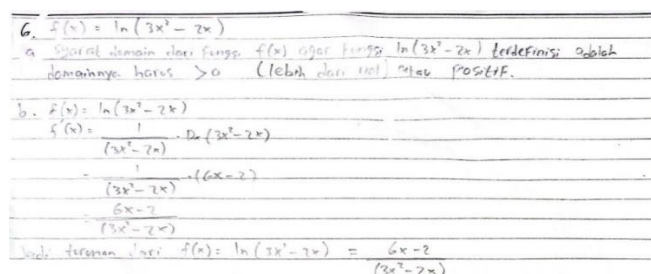 6. f(x) = ln (3x² − 2x)
a syarat domain dari fungsi f(x) agar fungsi ln (3x² − 2x) terdefinisi adalah
domainnya harus > 0 (lebih dari nol) atau positif.
b. f(x) = ln (3x² − 2x)
f'(x) = 1/(3x² − 2x) · Dx (3x² − 2x)
= 1/(3x² − 2x) · (6x − 2)
= 6x − 2/(3x² − 2x)
Jadi turunan dari f(x) = ln (3x² − 2x) = 6x − 2/(3x² − 2x)